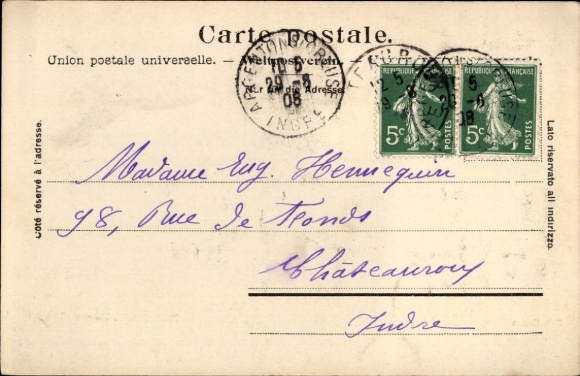 Carte postale.
Union postale universelle. — Weltpostverein.
Nur für die Adresse
ARGENTON S CREUSE
INDRE
29-8
08
REPUBLIQUE FRANÇAISE
5c POSTES
REPUBLIQUE FRANÇAISE
5c POSTES
Côté réservé à l'adresse.
Lato riservato all indirizzo.
Madame Eug. Hennequin
98, Rue de Fonds
Châteauroux
Indre